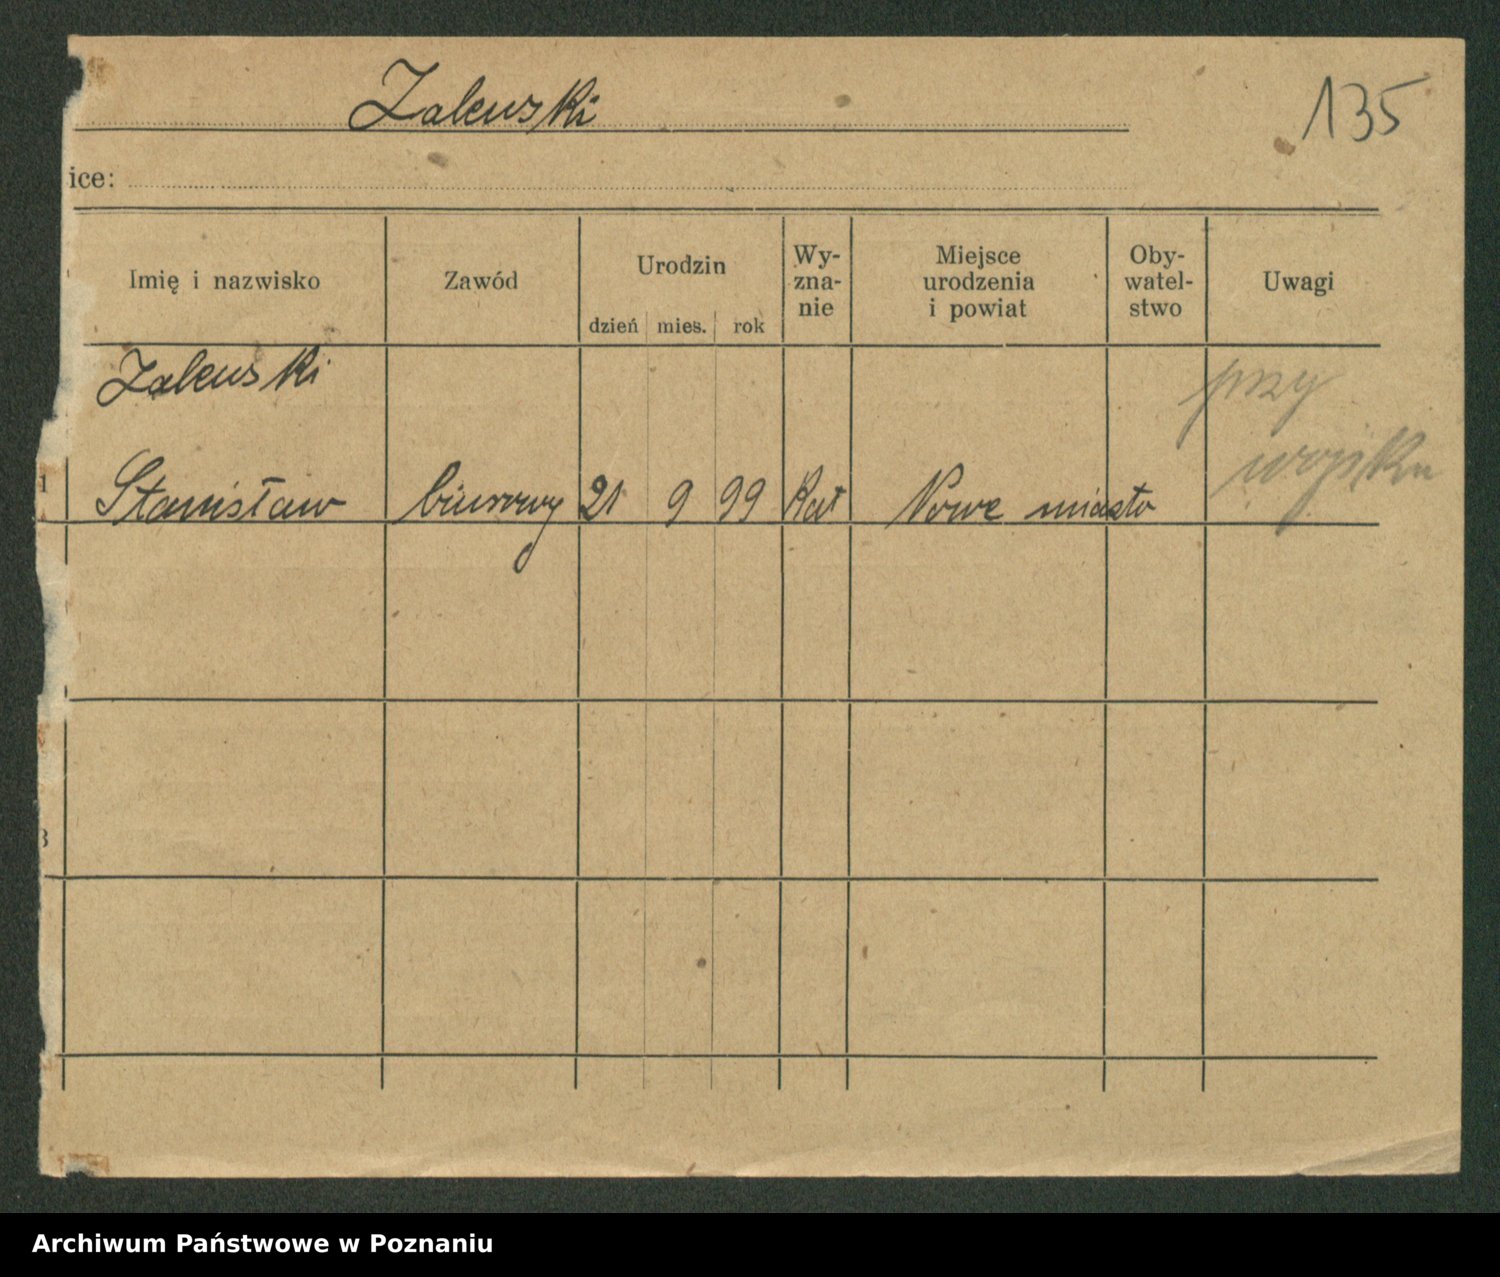 Zalewski
135
ice:
Imię i nazwisko
Zawód
Urodzin
dzień mies. rok
Wy-
zna-
nie
Miejsce
urodzenia
i powiat
Oby-
watel-
stwo
Uwagi
Zalewski
przy
wojsku
1 Stanisław biurowy 21 9 99 Kat Nowe miasto
3
Archiwum Państwowe w Poznaniu